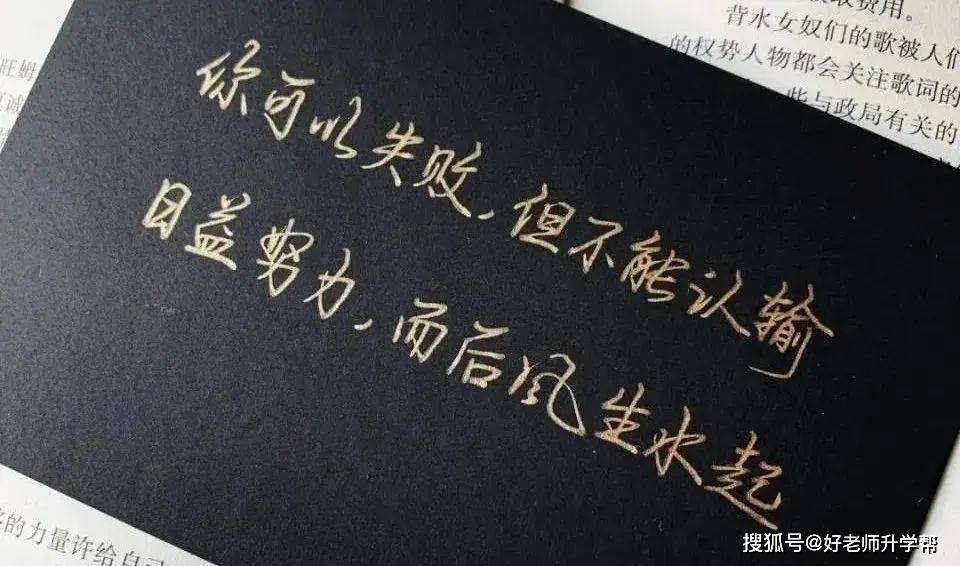 你可以失败，但不能认输
日益努力，而后风生水起
费用。
背水女奴们的歌被人们
的权势人物都会关注歌词的
些与政局有关的
旺姆
的力量许给自己
搜狐号@好老师升学帮